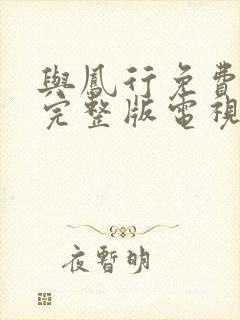 與鳳行免費
完整版電視
夜暫明